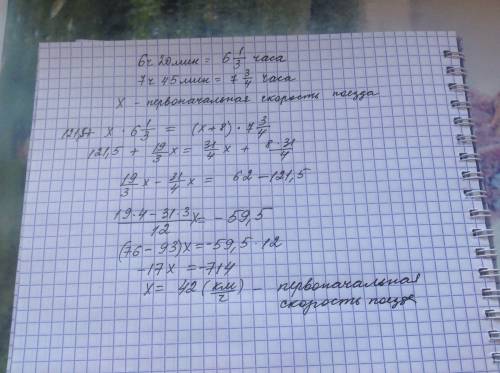 6ч 20мин = 6 1/3 часа
7ч 45мин = 7 3/4 часа
X - первоначальная скорость поезда
121,5+ x · 6 1/3 = (x+8) · 7 3/4
121,5 + 19/3 x = 31/4 x + 8·31/4
19/3 x - 31/4 x = 62 - 121,5
19·4-31·3/12 x = -59,5
(76-93)x = -59,5·12
-17x = -714
x = 42 (км/ч) - первоначальная
скорость поезда